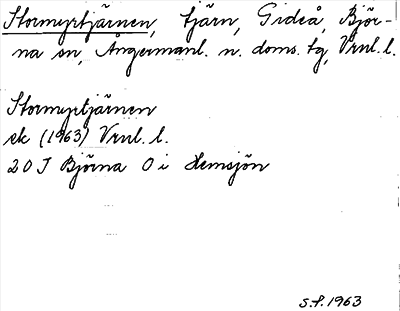 Stormyrtjärnen, tjärn, Gideå, Björ-
na sn, Ångermanl. n. doms. tg, Vrnl. l.
Stormyrtjärnen
ek (1963) Vrnl. l.
20 J Björna O i Hemsjön
S.P. 1963